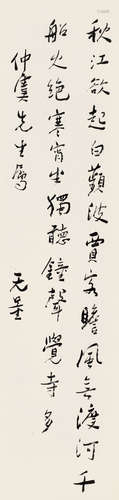 秋江欲起白蘋波賈客瞻風無渡河千
船火絕寒宵坐獨聽鐘聲覺寺多
仲先生屬
无量